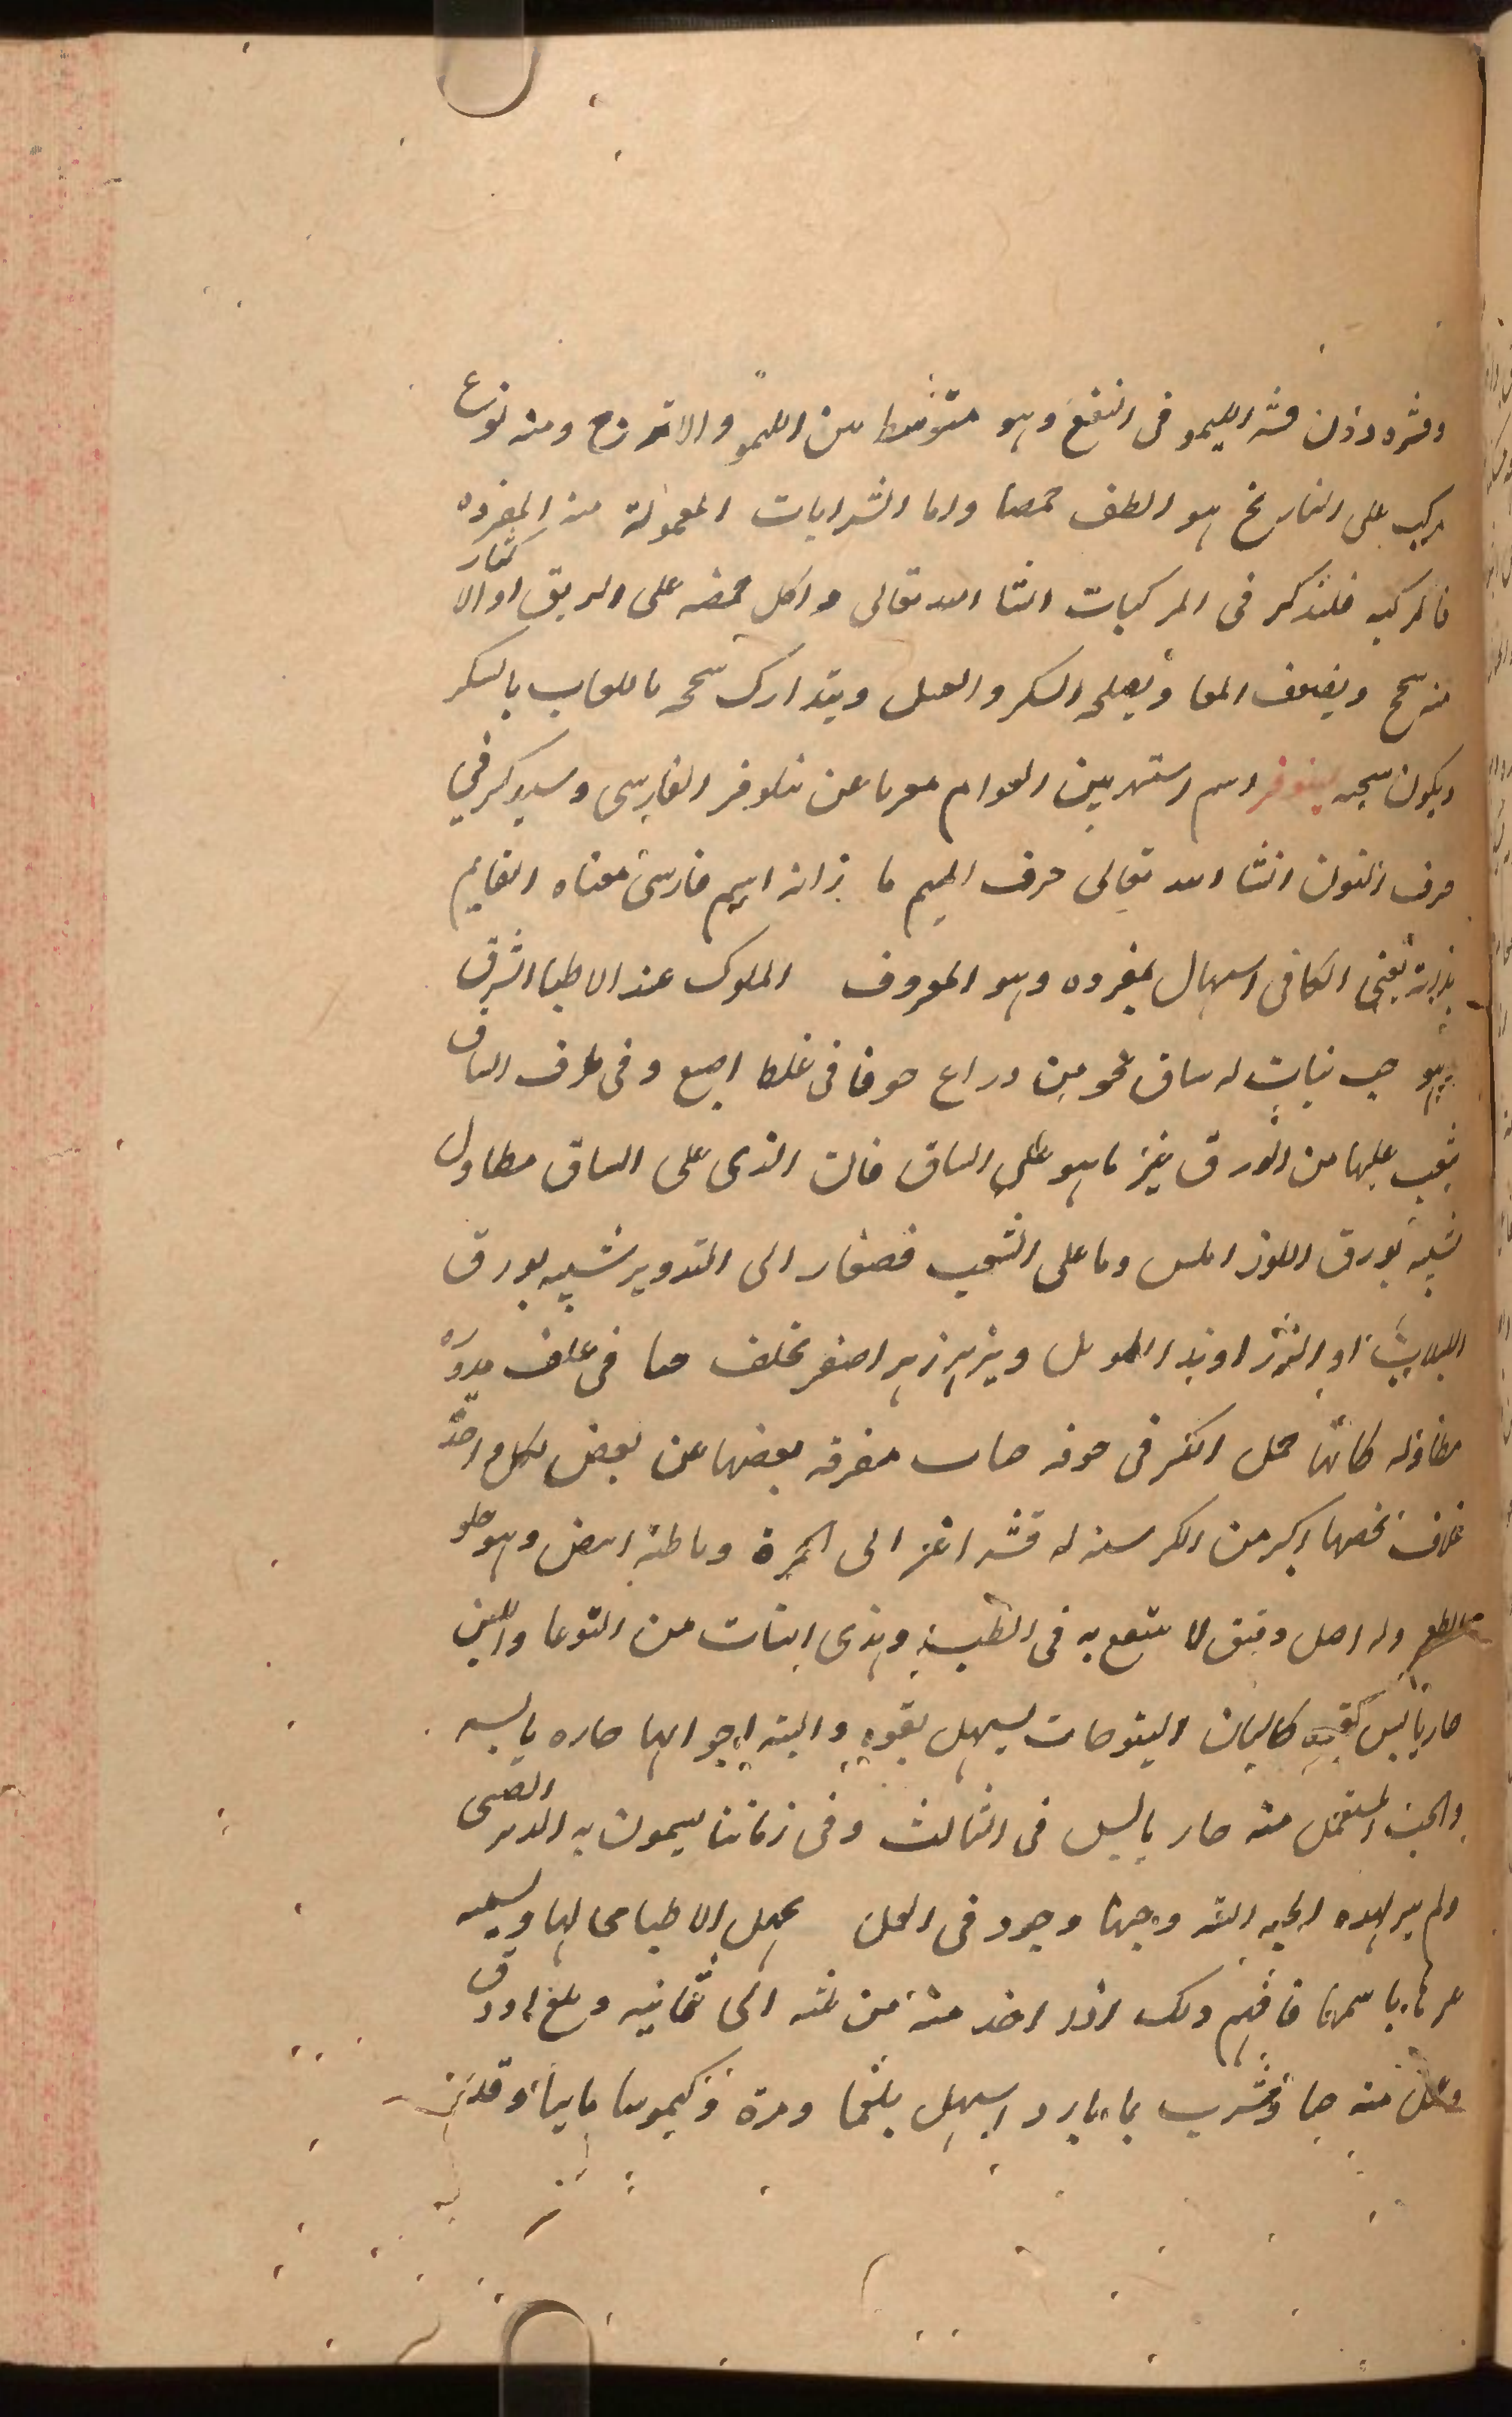 وقشره دون قشر الليمو فى النفع وهو متوسط بين الليمو والاترج ومنه نوع
مركب على النارنج هو الطف حمضا واما الشرابات المعمولة منه المفرده
فالمركبه فلتذكر فى المركبات انشا الله تعالى واكل حمضه على الريق او الاكثار
منه سحج ويضعف المعا ويصلحه السكر والعسل ويتدارك سحجه باللعاب بالسكر
ويكون سحجه لينوفر اسم اشتهر بين العوام معربا عن نيلوفر الفارسى وسيذكر في
حرف النون انشا الله تعالى حرف الميم ما زانه اسم فارسى معناه القايم
بذاته يعنى الكافى اسهال بمفرده وهو المعروف الملوك عند الاطبا الشرق
وهو حب نبات له ساق نحو من دراع جوفا فى غلظ اصبع وفى طرف الساق
شعب عليها من الورق غير ما هو على الساق فان الذى على الساق مطاول
شبيه بورق اللوز املس وما على الشعب فصغار الى التدوير شبيه بورق
او الزراوند الطويل ويزهر زهر اصفر يخلف حبا فى غلف مدوره
مطاوله كانها حمل الكبر فى جوفه حبات مفرقه بعضها عن بعض لكل واحد
غلاف يخصها اكبر من الكرسنه له قشر اغبر الى الحمرة وباطنه ابيض وهو حلو
الطعم وله اصل دقيق لا ينتفع به فى الطب وهذى النبات من اليتوعا واللبن
حار يابس كالبان اليتوعات يسهل بقوه والبته اجرائها حاره يابسه
والحب المستعمل منه حار يابس فى الثالث وفى زماننا يسمون به الدند الصينى
ولم ير لهذه الحبه البته وجود فى الاطبا مجالها ويسميه
باسمها فافهم ذلك اذا اخذ منه من ثلثه الى ثمانيه وبلع او دق
وعمل منه حبا وشرب بما بارد اسهل بلغما ومرة وكيموسا مائيا وقدر